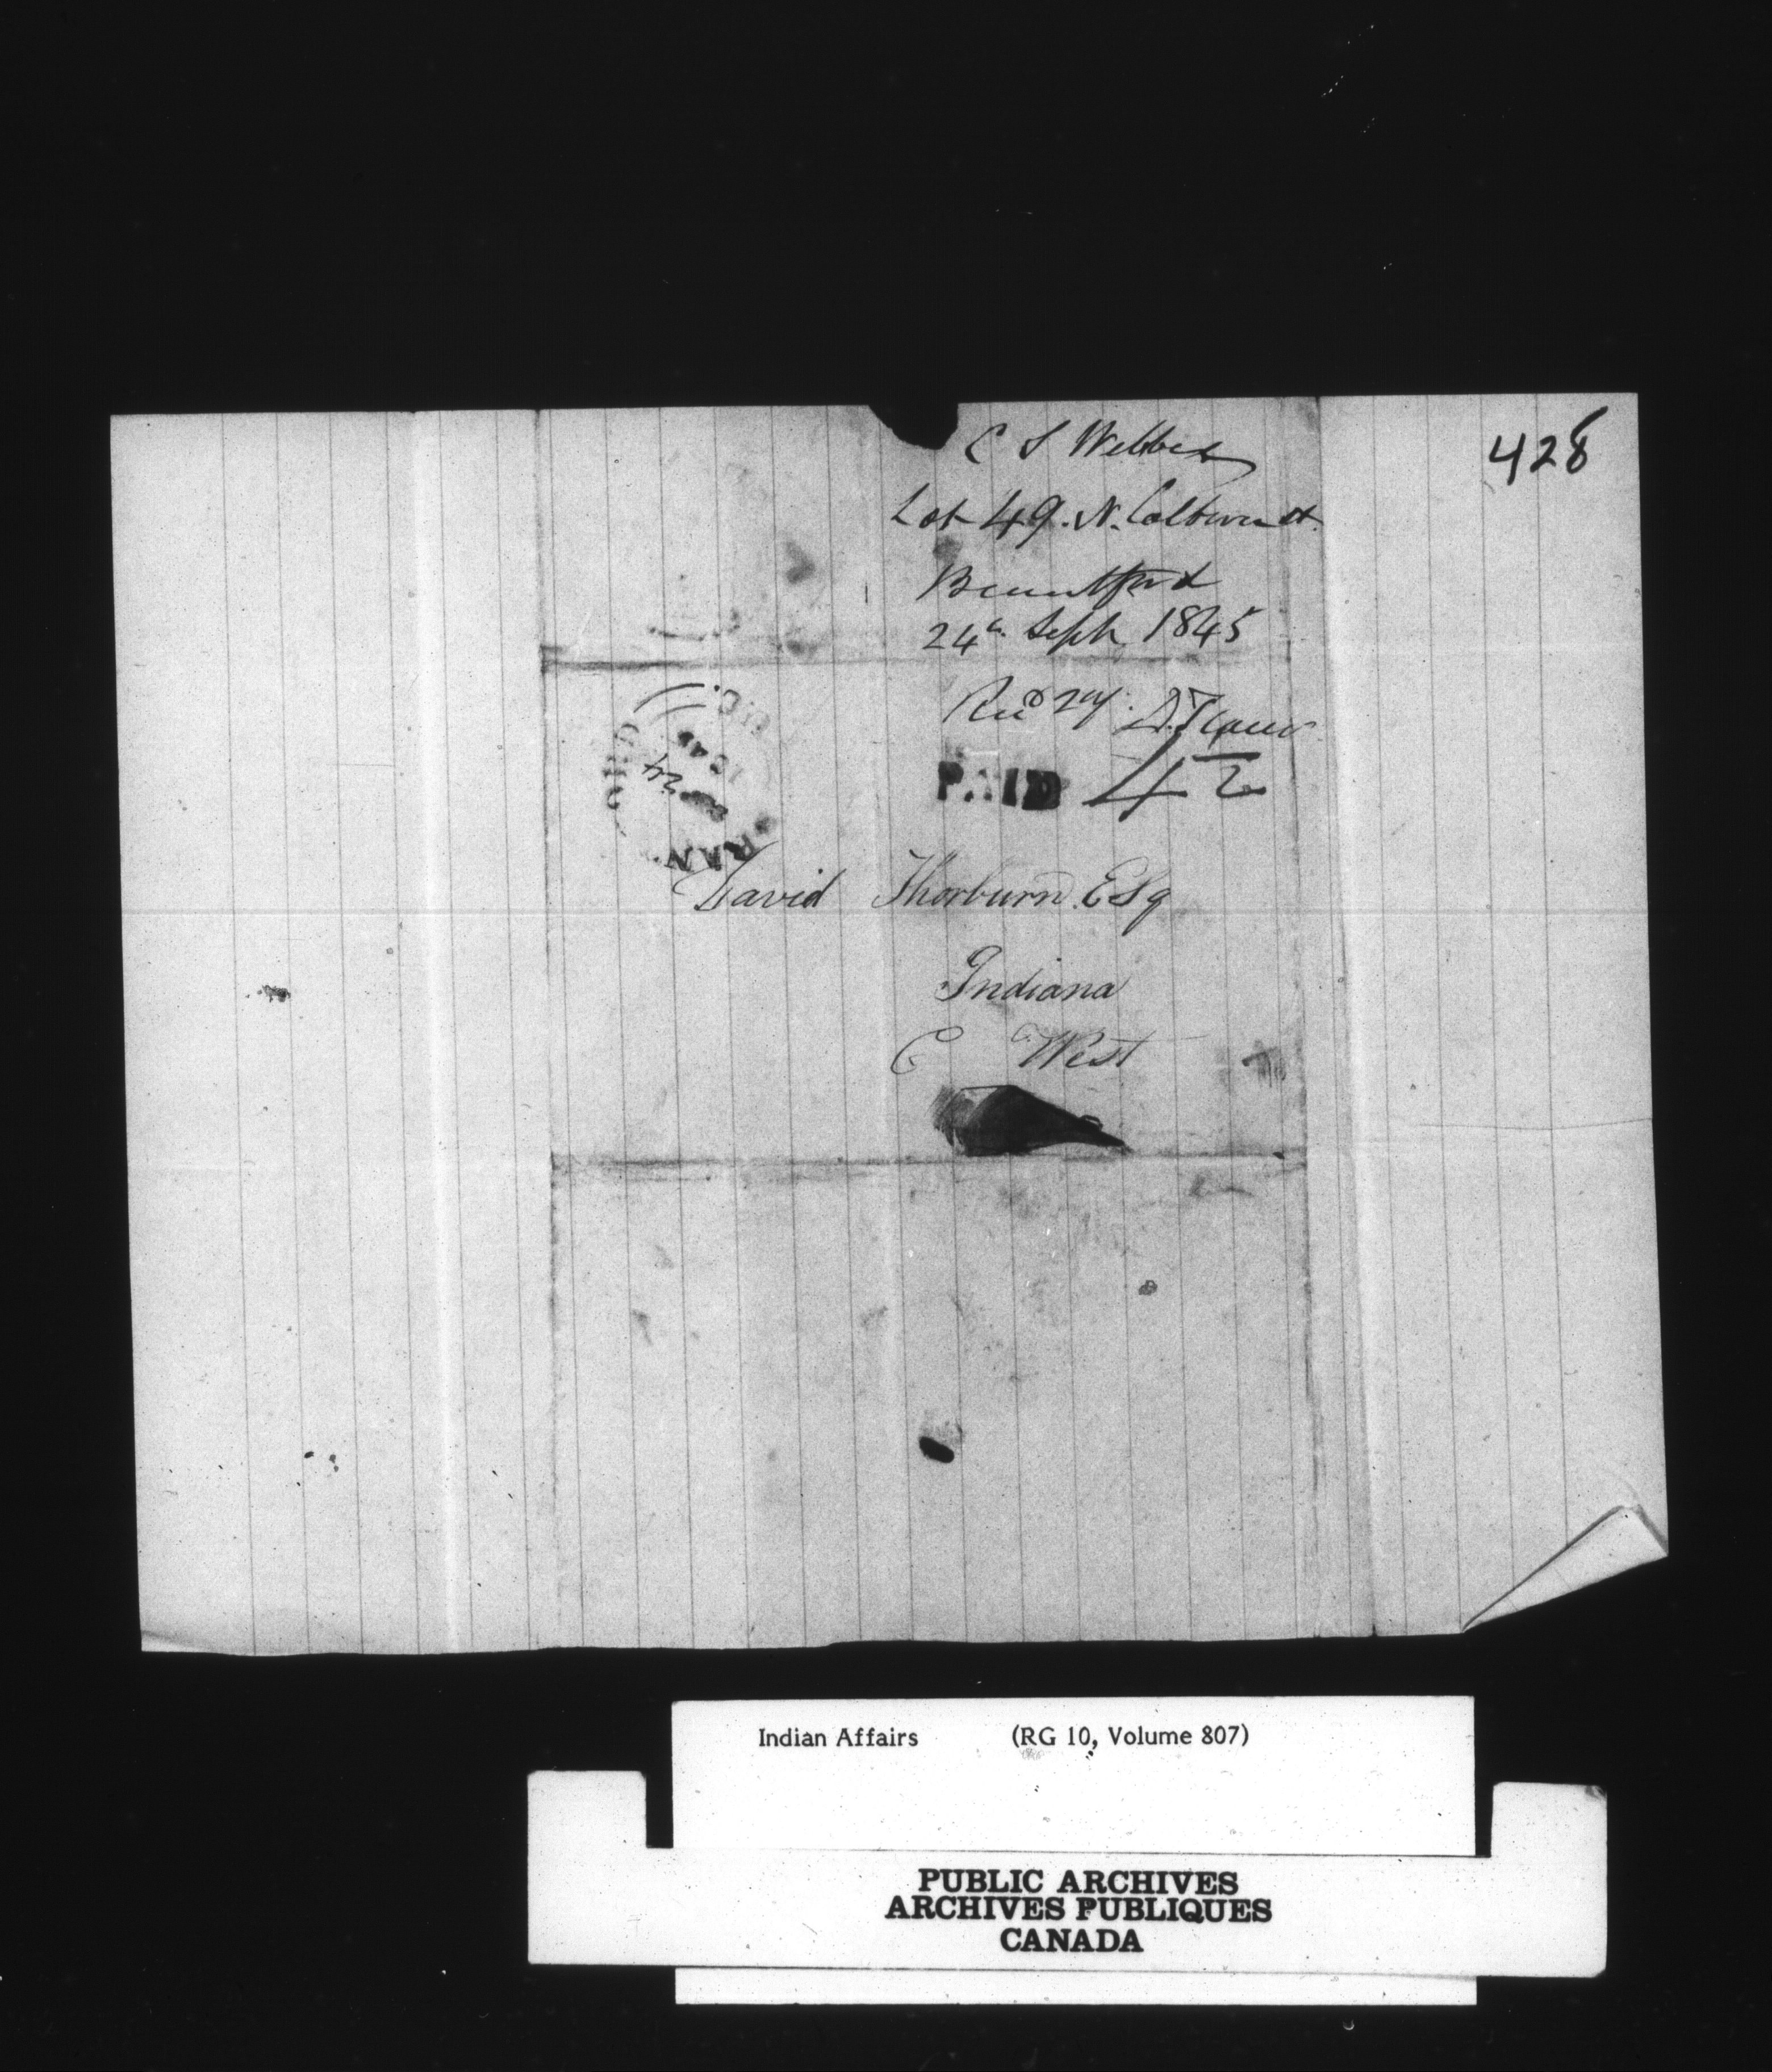 428
C S Webber
Lot 49. N. Colborne st.
Brantford
24th Sept 1845
Recd 29.
PAID 4
BRAN
24
1845
U.C.
David Thorburn Esq
Indiana
C West
Indian Affairs (RG 10, Volume 807)
PUBLIC ARCHIVES
ARCHIVES PUBLIQUES
CANADA